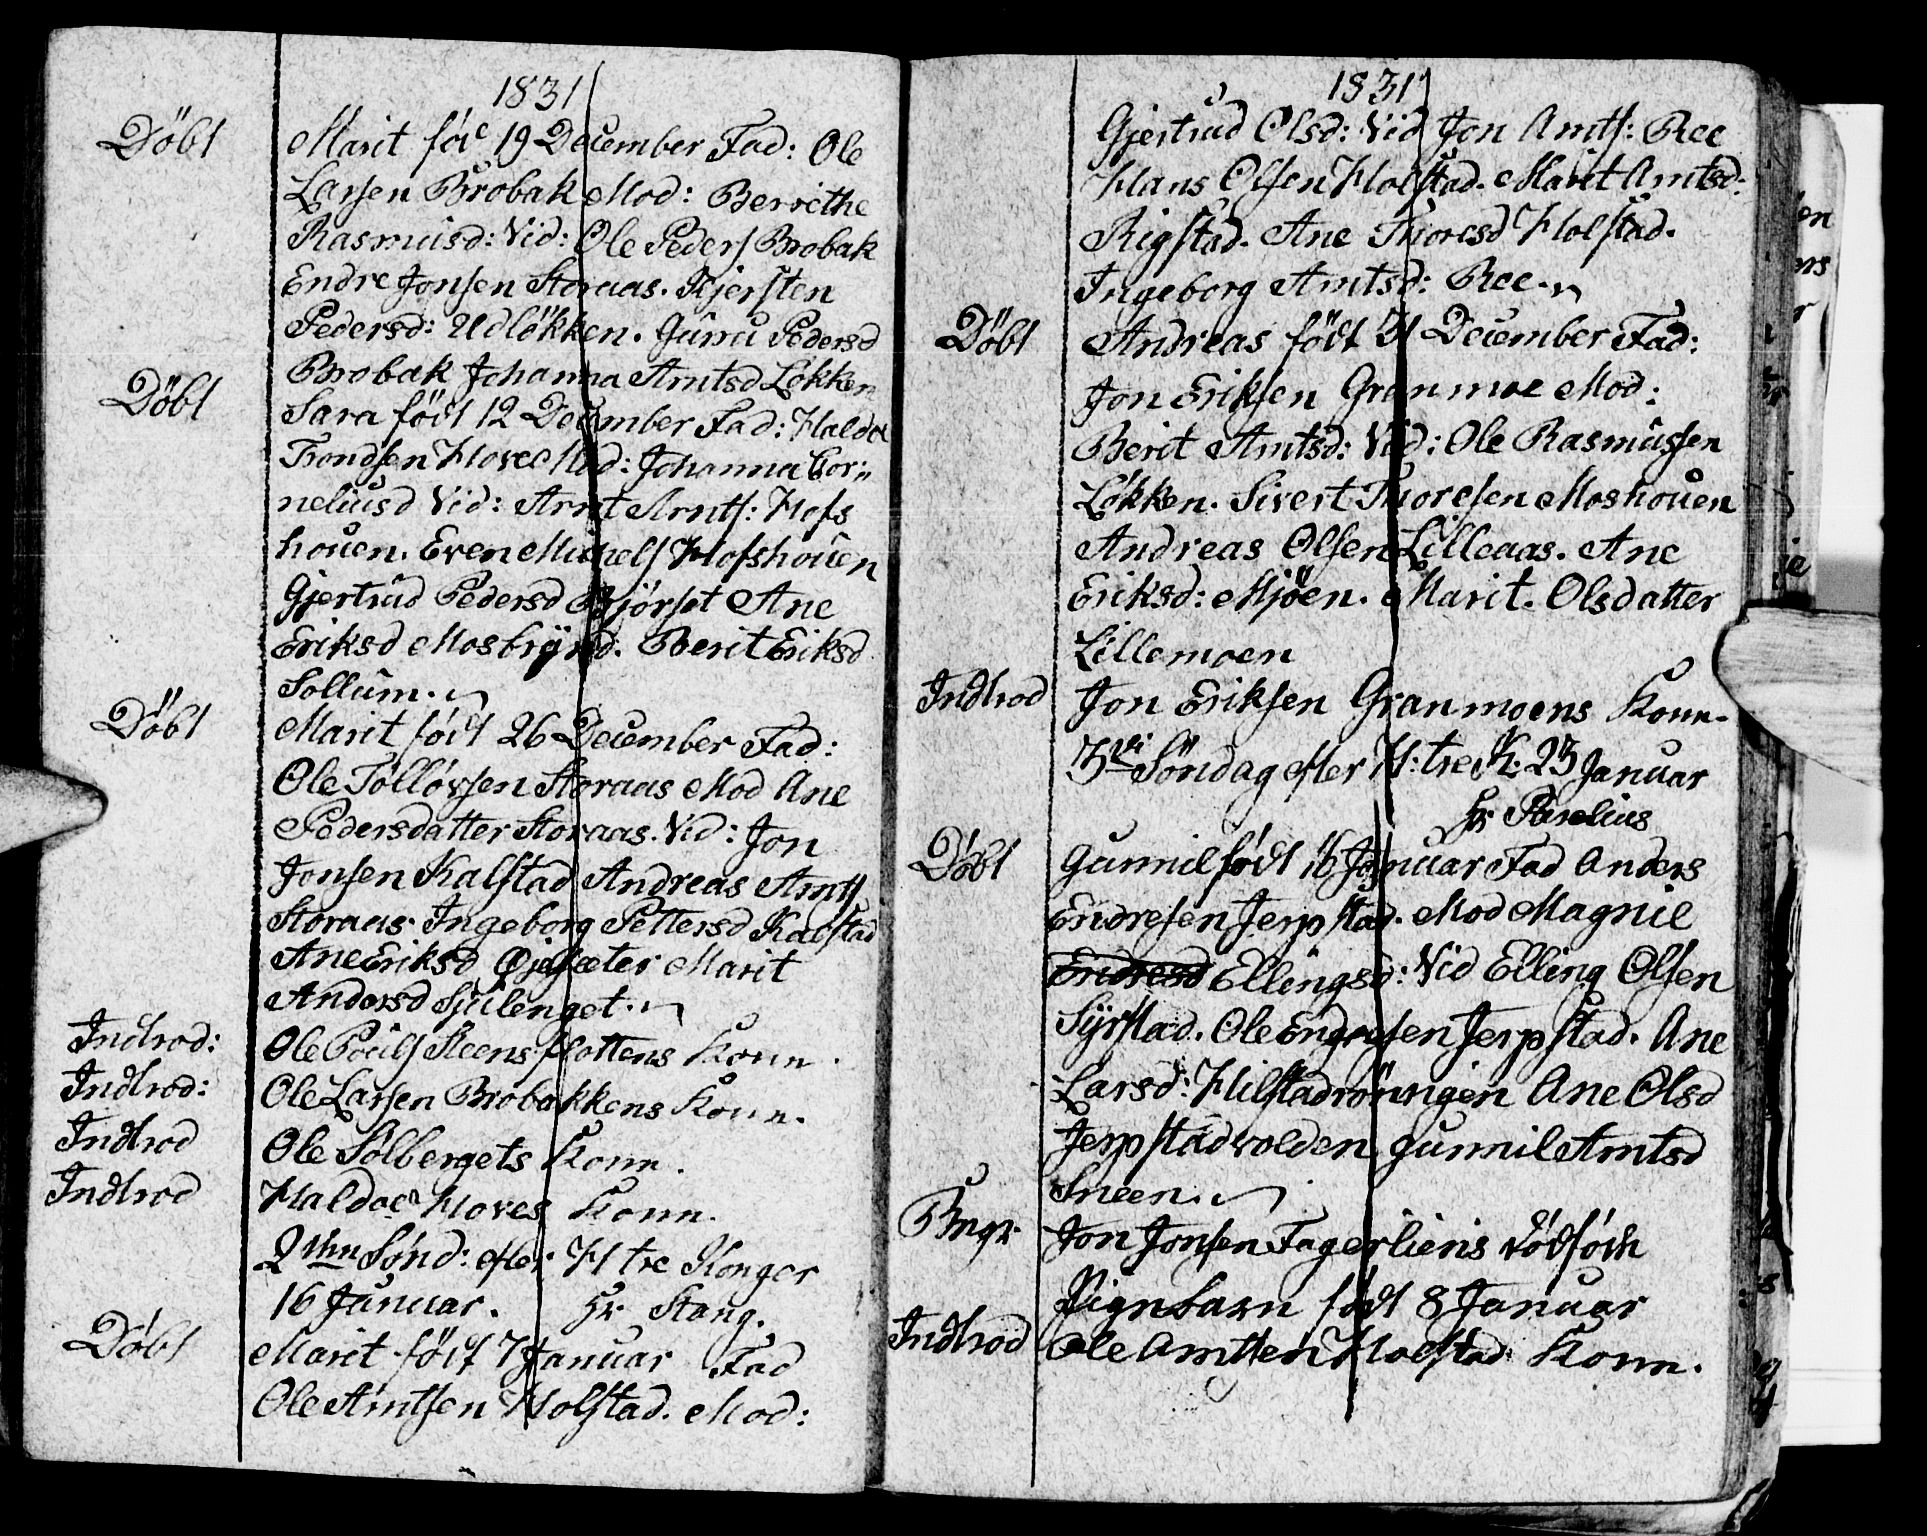 1831
Döbt Marit föd 19 December Fad: Ole
Larsen Brobak Mod: Berrethe
Rasmusd: Vid: Ole Peders Brobak
Endre Jonsen Storaas. Kjersten
Pedersd: Udlökken. Gurru Pedersd
Brobak Johanna Arntsd Lökken
Döbt Sara födt 12 December Fad: Haldoe
Trondsen Hove Mod: Johanna Cor„
neliusd Vid: Arnt Arnts: Hofs
houen. Even Mikkels Hofshouen
Gjertrud Pedersd Bjørset Ane
Eriksd Mosbrynd. Berit Eriksd
Sollum.
Döbt Marit födt 26 December Fad:
Ole Tollövsen Storaas Mod Ane
Pedersdatter Storaas. Vid: Jon
Jonsen Kalstad Andreas Arnts
Storaas. Ingeborg Pettersd Kalstad
Ane Eriksd Øjesæter Marit
Andersd Sjulenget.
Indtrod: Ole Pouls Steensflottens Konn.
Indtrod: Ole Larsen Brobakkens Konn.
Indtrod Ole Solbergets Konn.
Indtrod Haldoe Hoves Konn.
2den Sönd: efter H tre Konger
16 Januar. Hr Stang.
Döbt Marit födt 7 Januar Fad
Ole Arntsen Holstad. Mod:
1831
Gjertrud Olsd: Vid Jon Arnts: Ree
Hans Olsen Holstad. Marit Arntsd:
Rigstad. Ane Thoresd Holstad.
Ingeborg Arntsd: Ree.
Döbt Andreas födt 31 December Fad:
Jon Eriksen Granmoe Mod:
Berit Arntsd: Vid: Ole Rasmussen
Lökken. Sivert Thoresen Moshouen
Andreas Olsen Lilleaas. Ane
Eriksd: Mjöen. Marit. Olsdatter
Lillemoen
Indtrod Jon Eriksen Granmoens Konn.
3di Söndag efter H: tre K: 23 Januar
Hr Parelius
Döbt Gunnil födt 16 Januar Fad Anders
Endresen Jerpstad. Mod Magnil
Endresd Ellingsd: Vid Elling Olsen
Syrstad. Ole Endresen Jerpstad. Ane
Larsd: Hilstadrönningen Ane Olsd
Jerpstadvolden Gunnil Arntsd
Sneen.
Begr. Jon Jonsen Fagerliens dödfödt
Pigebarn födt 8 Januar
Indtrod Ole Arntsen Holstad Konn.